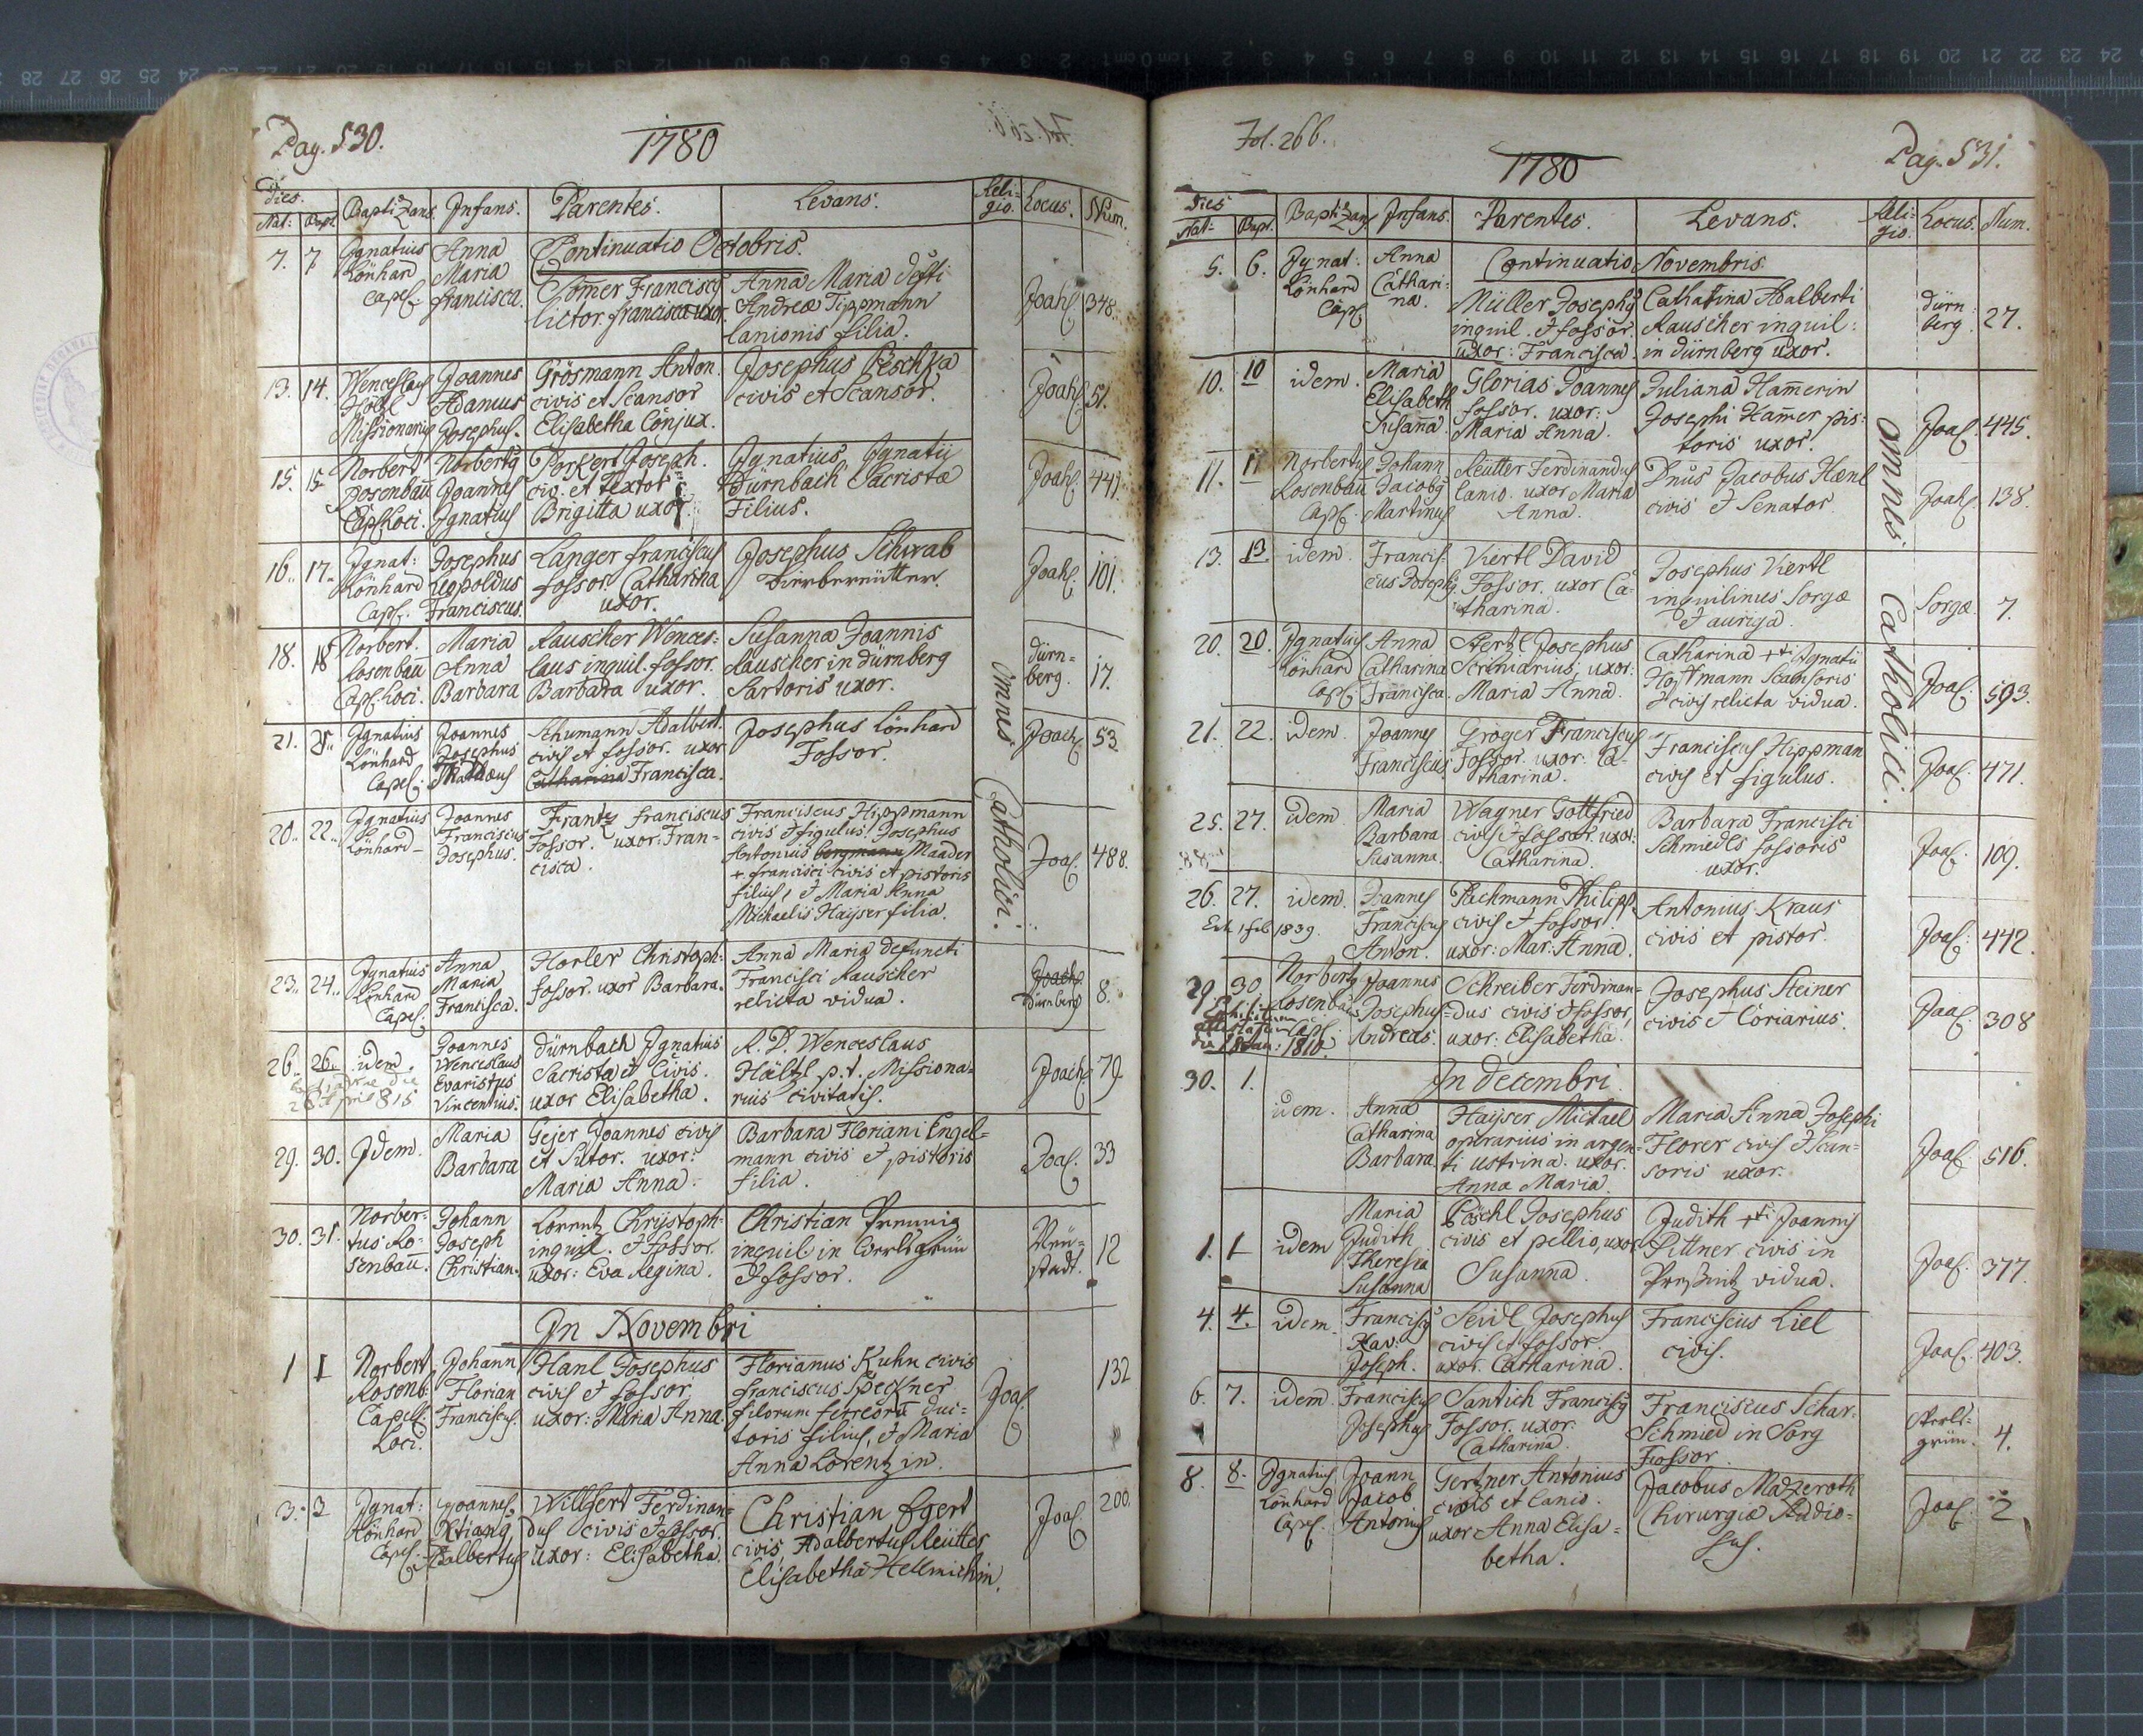 Pag. 530.
1780
Dies.
Nat: Bapt. Baptizans. Infans. Parentes. Levans. Religio. Locus. Num.
Continuatio Octobris.
7. 7 Ignatius Anna
Lönhard Maria Tomer Franciscus Anna Maria
Capel. Francisca. lictor. Francisca uxor. Andreæ Tippmann Joah. 348.
lanionis filia.
13. 14. Wenceslaus Joannes Grösmann Anton. Josephus Peschka Joah. 51.
Hötzl Adamus civis et Scansor civis et Scansor.
Missionarius Josephus. Elisabetha Conjux.
15. 15 Norbert Norbertus Porkert Joseph. Ignatius Ignatii Joah. 441.
Rosenbau Joannes civ. et textor Dürnbach Sacristæ
Cap. Loci. Ignatius Brigitta uxor. Filius.
16. 17. Ignat: Josephus Langer Franciscus Josephus Schwab Joah. 101.
Lönhard Leopoldus fossor. Catharina Bierbereütter.
Cap. Franciscus. uxor.
18. 18 Norbert. Maria Rauscher Wences= Susanna Joannis dürn=
Rosenbau Anna laus inquil. fossor. Rauscher in dürnberg berg. 17.
Cap. Loci. Barbara Barbara uxor. Sartoris uxor.
21. 21. Ignatius Joannes Schumann Adalbert. Josephus Lönhard Joach. 53.
Lönhard Josephus civis et fossor. uxor Fossor.
Capel. Mathæus Catharina Francisca.
20. 22. Ignatius Joannes Frantz Franciscus Franciscus Hippmann
Lönhard Franciscus Fossor. uxor: Fran= civis et figulus. Josephus
Josephus. cisca. Antonius bergmann Maader Joa. 488.
+ Francisci civis et pistoris
filius, et Maria Anna
Michaelis Hayser filia.
omnes Catholici.
23. 24. Ignatius Anna Horler Christoph: Anna Maria defuncti
Lönhard Maria fossor. uxor Barbara. Francisci Rauscher Joach. 8.
Capel. Francisca. relicta vidua. Dürnberg
26. 26. idem. Joannes Dürnbach Ignatius R. D. Wenceslaus
Wenceslaus Sacrista et Civis. Hältzl p.t. Missiona= Joach. 79
Evaristus uxor Elisabetha. rius civitatis.
Vincentius.
29. 30. Idem. Maria Gejer Joannes civis Barbara Floriani Engel= Joa. 33
Barbara et Sutor. uxor: mann civis et pistoris
Maria Anna. filia.
30. 31. Norber= Johann Lorentz Chrystoph: Christian Preunig Neu= 12
tus Ro= Joseph inquil. et fossor. inquil in Werlsgrün stadt.
senbau. Christian. uxor: Eva Regina. et fossor.
In Novembri
1 1 Norbert Johann Hanl Josephus Florianus Kuhn civis 132
Rosenb. Florian civis et fossor Franciscus Speckner Joa.
Capell. Franciscus. uxor: Maria Anna. filorum ferreorū duc=
Loci. toris filius, et Maria
Anna Lorentzin.
3. 3 Ignat: Joannes Willsert Ferdinan= Christian Egert Joa. 200.
Lönhard Xtiang. dus civis et fossor. civis Adalbertus Reütter
Capel. Adalbertus uxor: Elisabetha. Elisabetha Hellmichin.
Fol. 266.
1780
Pag. 531.
Dies
Nat= Bapt. Baptizans. Infans. Parentes. Levans. Religio. Locus. Num.
Continuatio Novembris.
5. 6. Ignat: Anna
Lönhard Cathari= Müller Josephus Catharina Adalberti dürn
Cap. na. inquil. et fossor Rauscher inquil: berg. 27.
uxor: Francisca. in dürnberg uxor.
10. 10 idem. Maria Glorias Joannes Juliana Hamerin
Elisabeth fossor. uxor: Josephi Hamer pis= Joa. 445.
Susana Maria Anna. toris uxor.
11. 11 Norbertus Johann Reutter Ferdinandus Dnus Jacobus Hænl Joah. 138.
Rosenbau Jacobus lanio. uxor Maria civis et Senator.
Cap. Martinus Anna.
13. 13 idem. Francis= Viertl David Josephus Viertl
cus Josephus Fossor. uxor Ca= inquilinus Sorgæ Sorgæ. 7.
tharina. et auriga.
20. 20. Ignatius Anna Hertzl Josephus Catharina +ti Ignatii
Lönhard Catharina Scriniarius, uxor: Hoffmann Scansoris Joa. 593.
Cap. Francisca. Maria Anna. et civis relicta vidua.
omnes Catholici.
21. 22. idem. Joannes Gröger Franciscus Franciscus Hippman Joa. 471.
Franciscus Fossor. uxor: Ca= civis et figulus.
tharina.
25. 27. idem. Maria Wagner Gottfried Barbara Francisci
Barbara civis et fossor. uxor. Schmiedls fossoris Joa. 109.
Susanna. Catharina. uxor.
26. 27. idem. Joannes Pachmann Philipp Antonius Kraus
1 feb 1839. Franciscus civis et fossor. civis et pistor. Joa. 442.
Anton. uxor: Mar: Anna.
29 30 Norbertus Joannes Schreiber Ferdinan= Josephus Steiner
Rosenbau Josephus dus civis et fossor, civis et Coriarius. Joa. 308
Cap. Andreas. uxor: Elisabetha.
1810.
30. 1. In decembri.
idem. Anna Hayser Michael Maria Anna Josephi
Catharina operarius in argen= Florer civis et Scan= Joa. 516.
Barbara. ti ustrina. uxor. soris uxor.
Anna Maria.
1. 1 idem Maria Pöschl Josephus Judith +ti Joannis
Judith civis et pellio, uxor Sittner civis in Joa. 377.
Theresia Susanna. Preßnitz vidua.
Susanna
4. 4. idem. Franciscus Seidl Josephus Franciscus Liel
Xav: civis et fossor. civis. Joa. 403.
Joseph. uxor. Catharina.
6. 7. idem. Franciscus Santich Franciscus Franciscus Schar=
Josephus Fossor. uxor. Schmied in Sorg grün. 4.
Catharina. Fossor.
8 8. Ignatius Joann Gertner Antonius Jacobus Mazzeroth
Lönhard Jacob civis et lanio. Chirurgiæ Studio= Joa. 2
Cap. Antonius uxor Anna Elisa= sus.
betha.